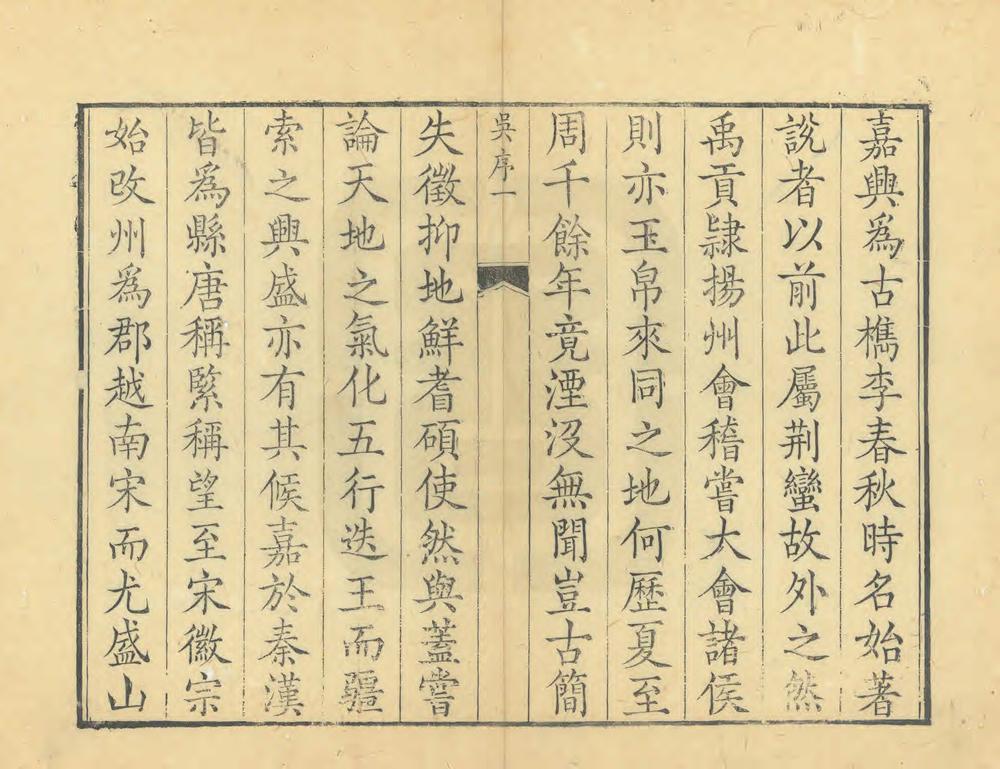 嘉興爲古檇李春秋時名始著
說者以前此屬荆蠻故外之然
禹貢隸揚州會稽嘗大會諸侯
則亦玉帛來同之地何歷夏至
周千餘年竟湮沒無聞豈古簡
吳序一
失徵抑地鮮耆碩使然與蓋嘗
論天地之氣化五行迭王而疆
索之興盛亦有其候嘉於秦漢
皆爲縣唐稱緊稱望至宋徽宗
始改州爲郡越南宋而尤盛山